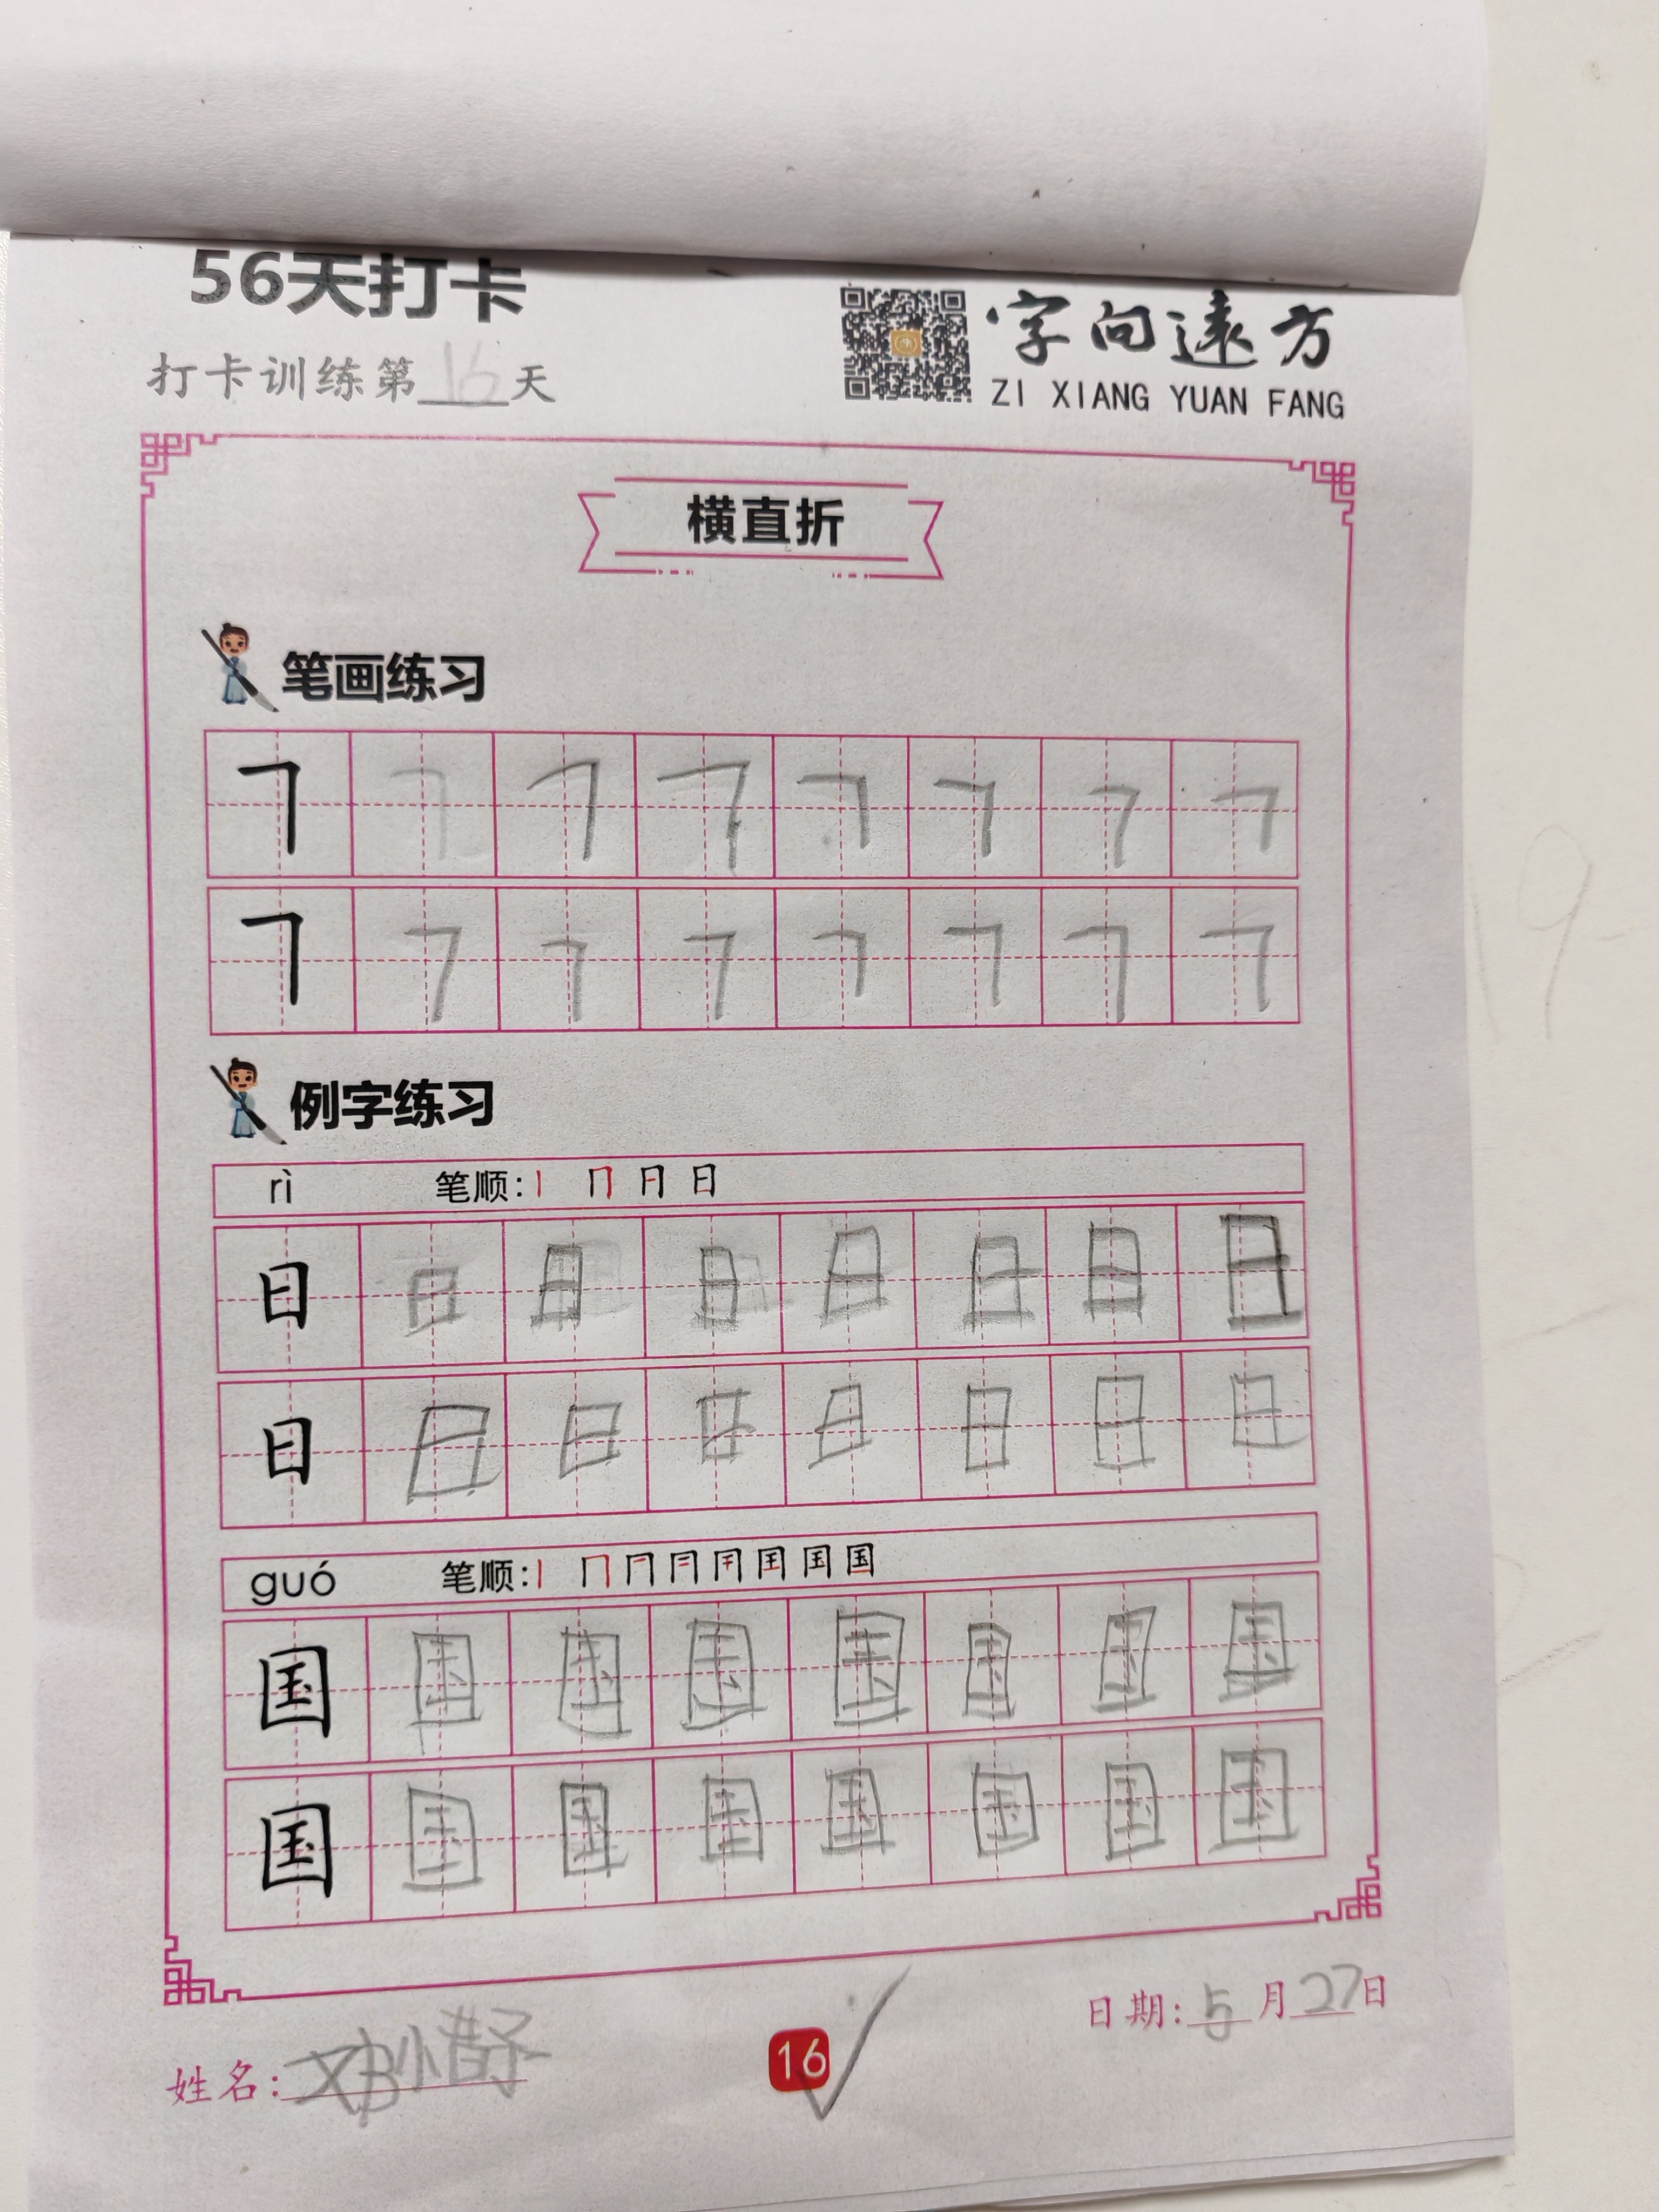 56天打卡
打卡训练第16天
字向远方
ZI XIANG YUAN FANG
横直折
笔画练习
例字练习
rì 笔顺:丨 冂 日 日
日 日 日 日 日 日 日 日
日 日 日 日 日 日 日 日
guó 笔顺:
国 国 国 国 国 国 国 国
国 国 国 国 国 国 国 国
日期:5月27日
姓名:
16